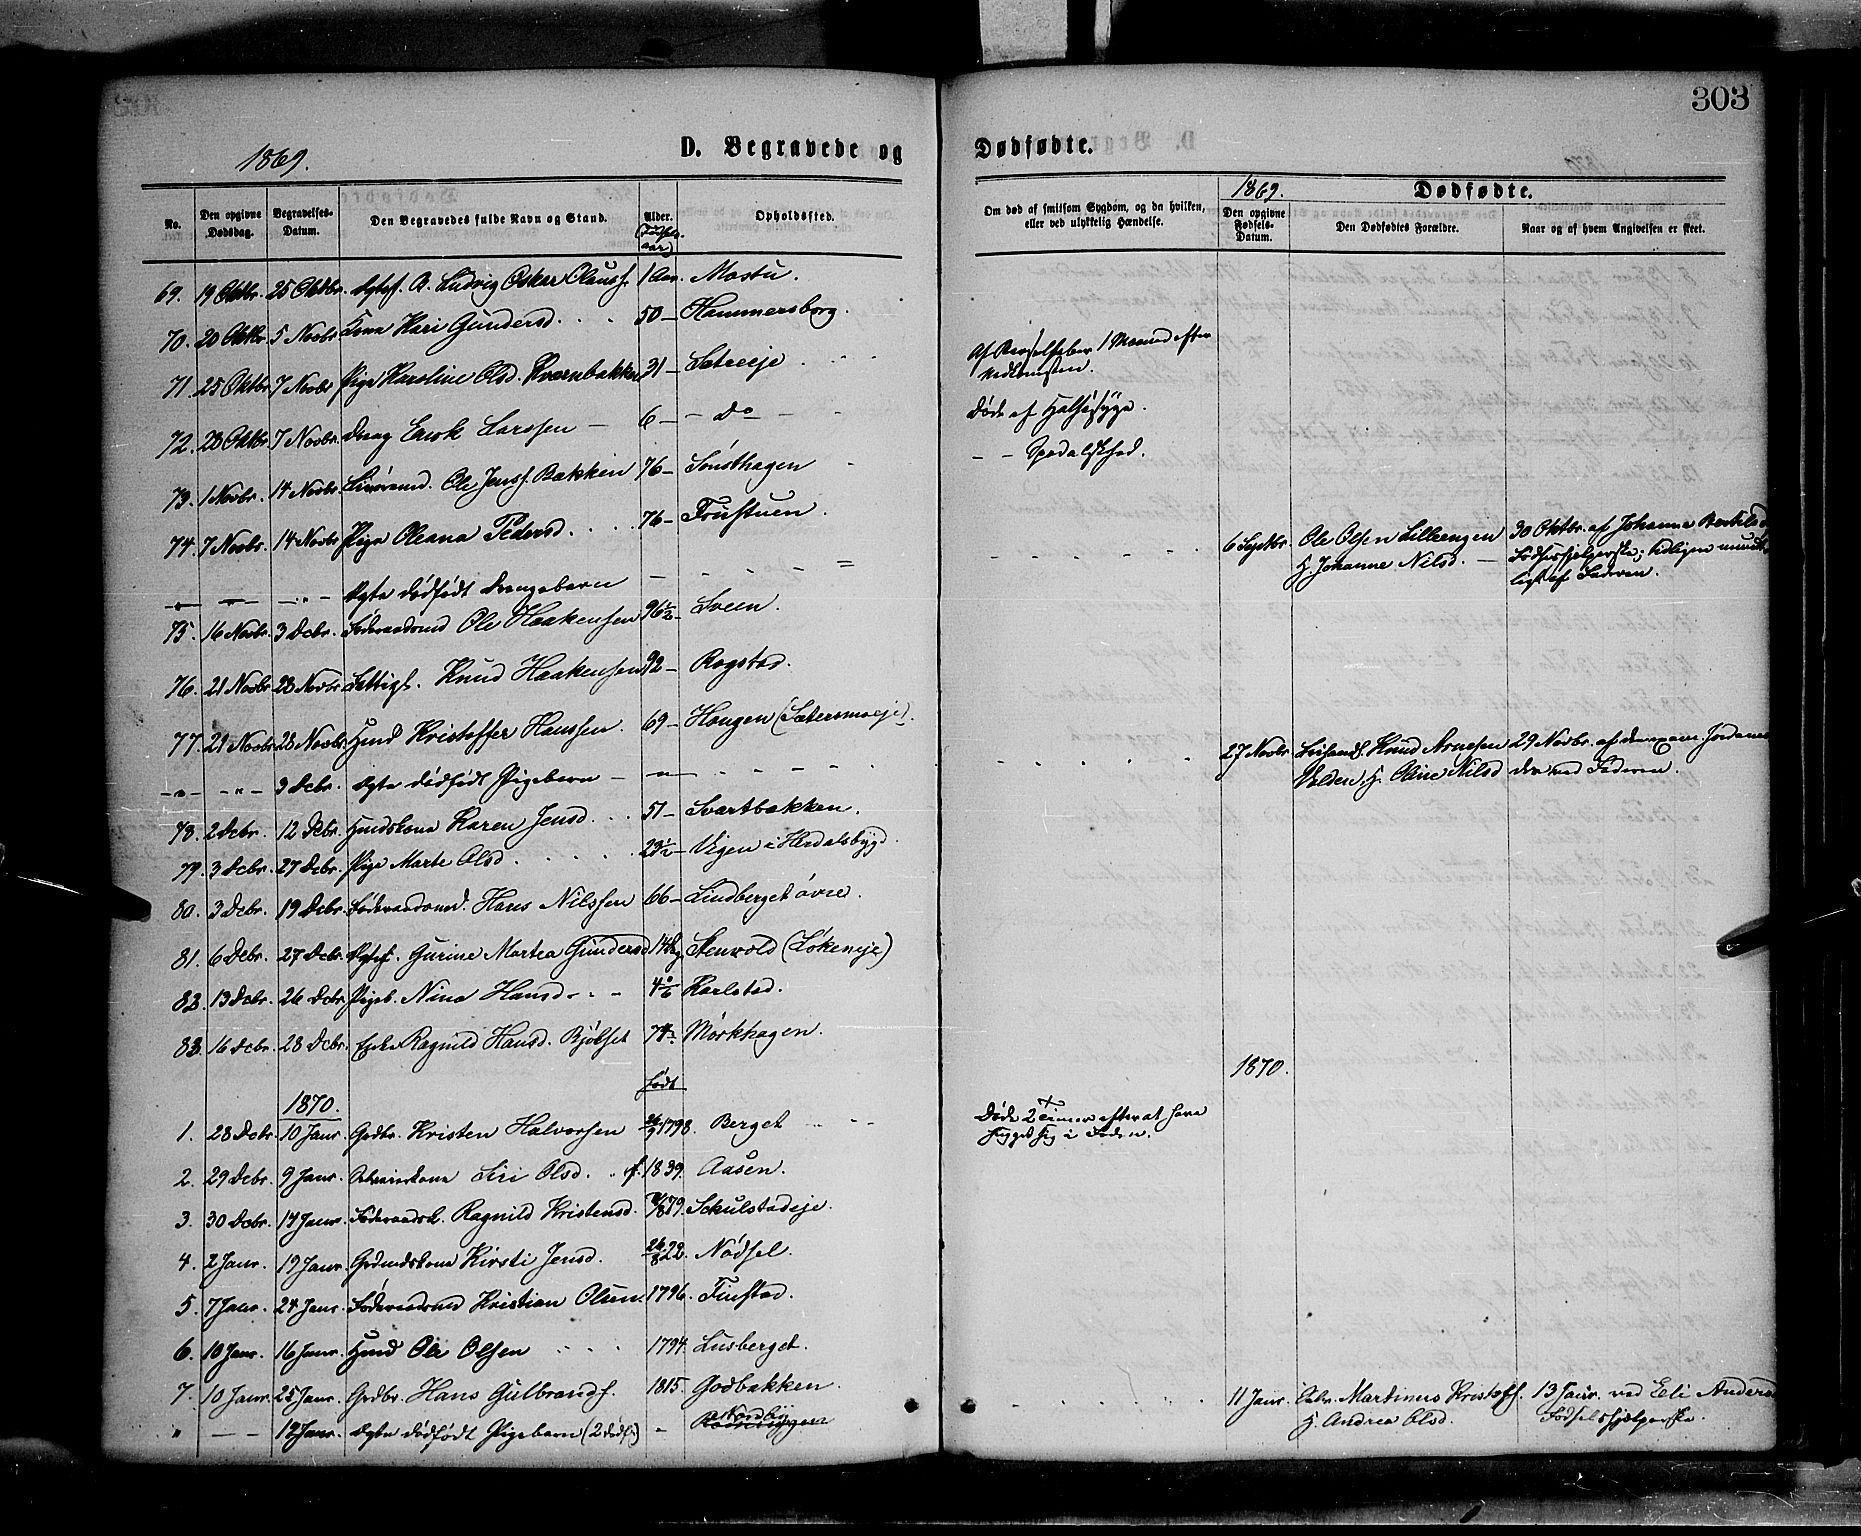 303
1869.
D. Begravede og
Dødfødte.
1869.
Dødfødte.
No.
Den opgivne Dødsdag.
Begravelses-Datum.
Den Begravedes fulde Navn og Stand.
Alder. (Fødselsaar)
Opholdssted.
Om død af smitsom Sygdom, og da hvilken, eller ved ulykkelig Hændelse.
Den opgivne Fødsels-Datum.
Den Dødfødtes Forældre.
Naar og af hvem Angivelsen er skeet.
69. 19 Oktbr. 25 Oktbr. Ludvig Oskar Clauss. 1 Aar. Mostu.
70. 20 Oktbr. 5 Novbr. Kona Kari Gundersd. 50 – Hammersborg.
71. 25 Oktbr. 7 Novbr. Pige Karoline Olsd. Kvernbakken 31 – Sætreeje
Af Barselfeber 1 Maaned efter Nedkomsten.
72. 28 Oktbr. 7 Novbr. Dreng Erik Larssen – 6 – – Do –
Døde af Halssyge.
73. 1 Novbr. 14 Novbr. Ole Jenss. Bakken 76 – Sønsthagen
– – Spedalskhed.
74. 7 Novbr. 14 Novbr. Pige Oleana Pedersd. 76 – Trustuen.
Ægte dødfødt Drengebarn
6 Septbr. Ole Olsen Lilleengen H. Johanne Nilsd. – 30 Oktbr. af Johanne Fødselshjelperske; tidligere mundtligt af Faderen.
75. 16 Novbr. 3 Debr. Føderaadsmd Ole Haakensen 96½ – Sveen.
76. 21 Novbr. 28 Novbr. Fattigl. Knud Haakensen 92 – Rogstad.
77. 21 Novbr. 28 Novbr. Hmd Kristoffer Hanssen. 69 – Haugen (Sætersmoeje).
3 Debr. Ægte dødfødt Pigebarn –
27 Novbr. Knud Arnesen Volden H. Oline Nilsd 29 Novbr. af ved Faderen.
78. 2 Debr. 12 Debr. Hmdskone Karen Jensd. 51 – Svartbakken.
79. 3 Debr. 27 Debr. Pige Marte Olsd. 23½ – Vigen i Hærdalsbygd.
80. 3 Debr. 19 Debr. Føderaadsmd. Hans Nilssen 66 – Lindberget øvre.
81. 6 Debr. 27 Debr. Gurine Martea Gundersd 14 Stenvold (Løkeneje)
82. 13 Debr. 26 Debr. Pigeb. Nina Hansd. Karlstad.
83. 16 Debr. 28 Debr. Enke Ragnild Hansd. Bjølset 74½ Mørkhagen.
1870.
født
1870.
1. 28 Debr. 10 Janr. Grdbr. Kristen Halvorsen 1798. Berget
Døde 2 Timer efterat have hugget sig i Foden.
2. 29 Debr. 9 Janr. Siri Olsd. f. 1839. Aasen.
3. 30 Debr. 17 Janr. Føderaadsk. Ragnild Kristensd. Skulstadeje.
4. 2 Janr. 19 Janr. Grdmdskone Kirsti Jensd. 26/8 22. Nødsel.
5. 7 Janr. 24 Janr. Føderaadsmd Kristian Olsen. 1796. Finstad.
6. 10 Janr. 16 Janr. Hmd Ole Olsen 1794. Lusberget.
7. 10 Janr. 25 Janr. Grdbr. Hans Gulbrands. 1815. Godbakken.
" – – 19 Janr. Ægte dødfødt Pigebarn (2 dødf.) – Nordby
11 Janr. Martinus Kristoff. H. Andrea Olsd. 13 Janr. ved Eli Andersd Fødselshjelperske.